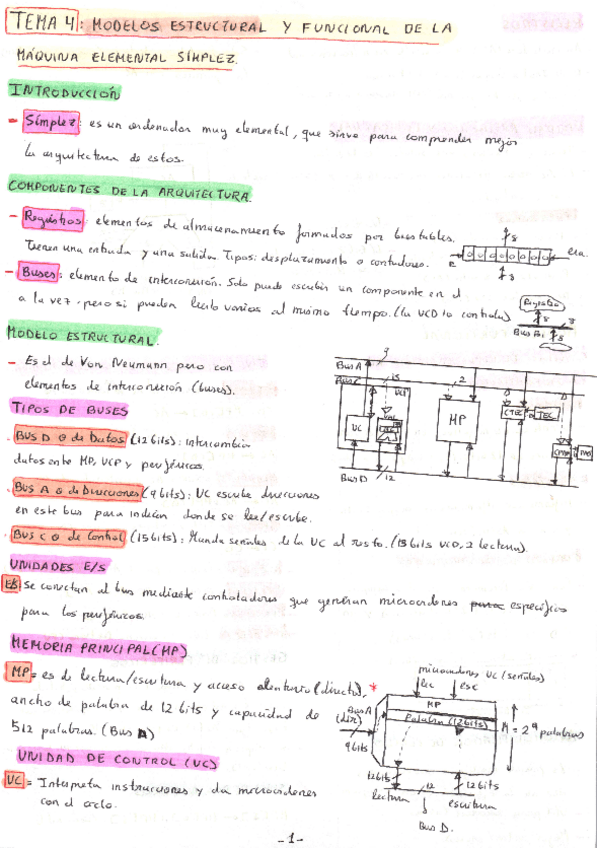 TEMA 4: MODELOS ESTRUCTURAL Y FUNCIONAL DE LA
MÁQUINA ELEMENTAL SÍMPLEZ.
INTRODUCCIÓN
- Símplez: es un ordenador muy elemental, que sirve para comprender mejor
la arquitectura de estos.
COMPONENTES DE LA ARQUITECTURA.
- Registros: elementos de almacenamiento formados por biestables.
Tienen una entrada y una salida. Tipos: desplazamiento o contadores.
- Buses: elemento de interconexión. Solo puede escribir un componente en él
a la vez, pero sí pueden leerlo varios al mismo tiempo. (la UCD lo controla)
8
8
Registro
8
Bus A
8
MODELO ESTRUCTURAL.
- Es el de Von Neumann pero con
elementos de interconexión (buses).
TIPOS DE BUSES
. BUS D o de Datos (12 bits): intercambia
datos entre MP, UCP y periféricos.
. BUS A o de Direcciones (9 bits): UC escribe direcciones
en este bus para indicar donde se lee/escribe.
. BUS C o de Control (15 bits): Manda señales de la UC al resto. (13 bits UCD, 2 lectura).
9
Bus A
Bus C
15
2
UC
MP
CTEC
TEC
Bus D
12
UNIDADES E/S
E/S Se conectan al bus mediante controladores que generan microórdenes específicas
para los periféricos.
MEMORIA PRINCIPAL (MP)
MP = es de lectura/escritura y acceso aleatorio (directo), *
ancho de palabra de 12 bits y capacidad de
512 palabras. (Bus A)
UNIDAD DE CONTROL (UC)
UC = Interpreta instrucciones y da microórdenes
con el ciclo.
microórdenes UC (señales)
lec
esc
MP
Palabra (12 bits)
Bus A
(dir)
9 bits
M = 2⁹ palabras
12 bits
12
12 bits
lectura
escritura
Bus D.
-1-